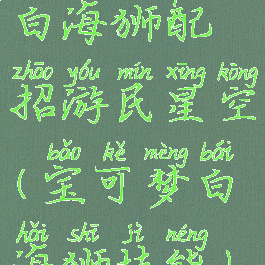 白海狮配
zhāo yóu mín xīng kōng
招游民星空
bǎo kě mèng bái
(宝可梦白
hǎi shī jì néng
海狮技能)